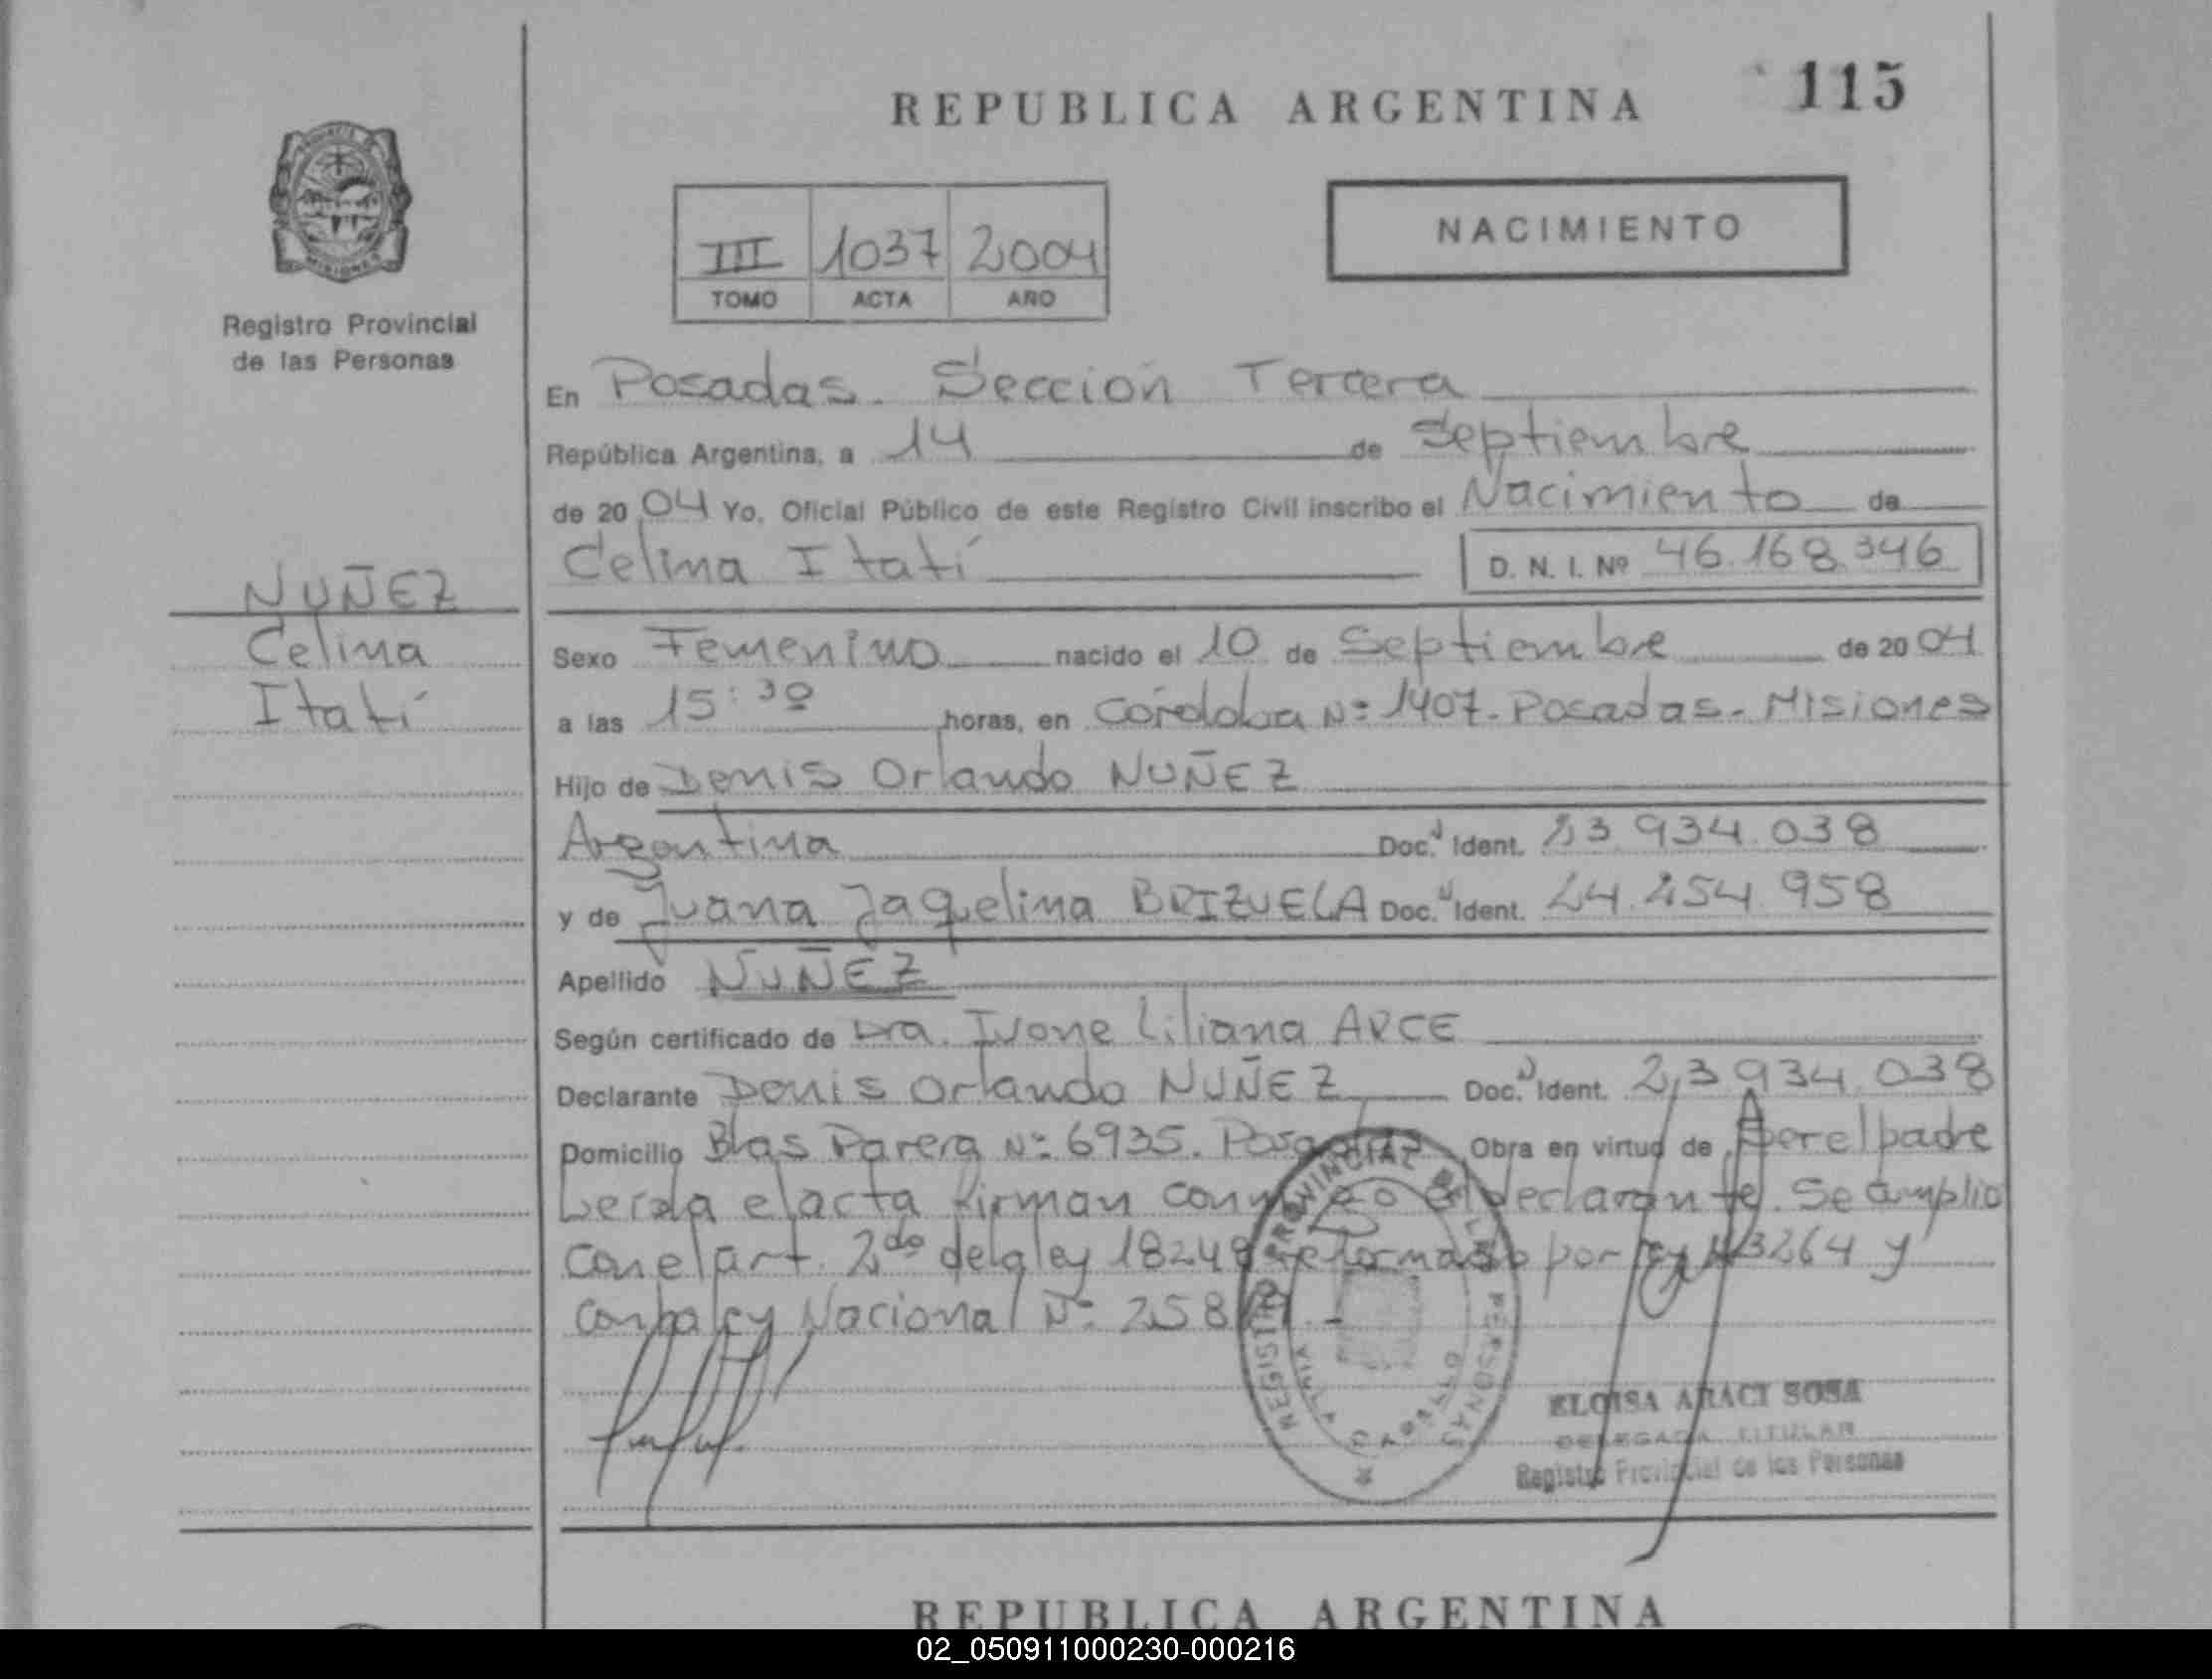 REPUBLICA ARGENTINA
115
NACIMIENTO
III 1037 2004
TOMO ACTA AÑO
Registro Provincial
de las Personas
NUÑEZ
Celina
Itatí
En Posadas. Sección Tercera
República Argentina, a 14 de Septiembre
de 2004 Yo, Oficial Público de este Registro Civil inscribo el Nacimiento de
Celina Itatí D. N. I. Nº 46.168.346
Sexo Femenino nacido el 10 de Septiembre de 2004
a las 15:30 horas, en Córdoba Nº 1407. Posadas - Misiones
Hijo de Denis Orlando NUÑEZ
Argentina Doc. Ident. 23.934.038
y de Juana Jaquelina BRIZUELA Doc. Ident. 24.254.958
Apellido NUÑEZ
Según certificado de Dra. Ivone Liliana ARCE
Declarante Denis Orlando NUÑEZ Doc. Ident. 23.934.038
Domicilio Blas Parera Nº 6935. Posadas Obra en virtud de Ser el padre
Leida el acta firman conmigo el declarante. Se amplio
con el art. 2do de la ley 18248 reformado por ley 23264 y
con la ley Nacional Nº 258
REGISTRO PROVINCIAL DE LAS PERSONAS
ELOISA ARACI SOSA
DELEGADA TITULAR
Registro Provincial de las Personas
REPUBLICA ARGENTINA
02_050911000230-000216